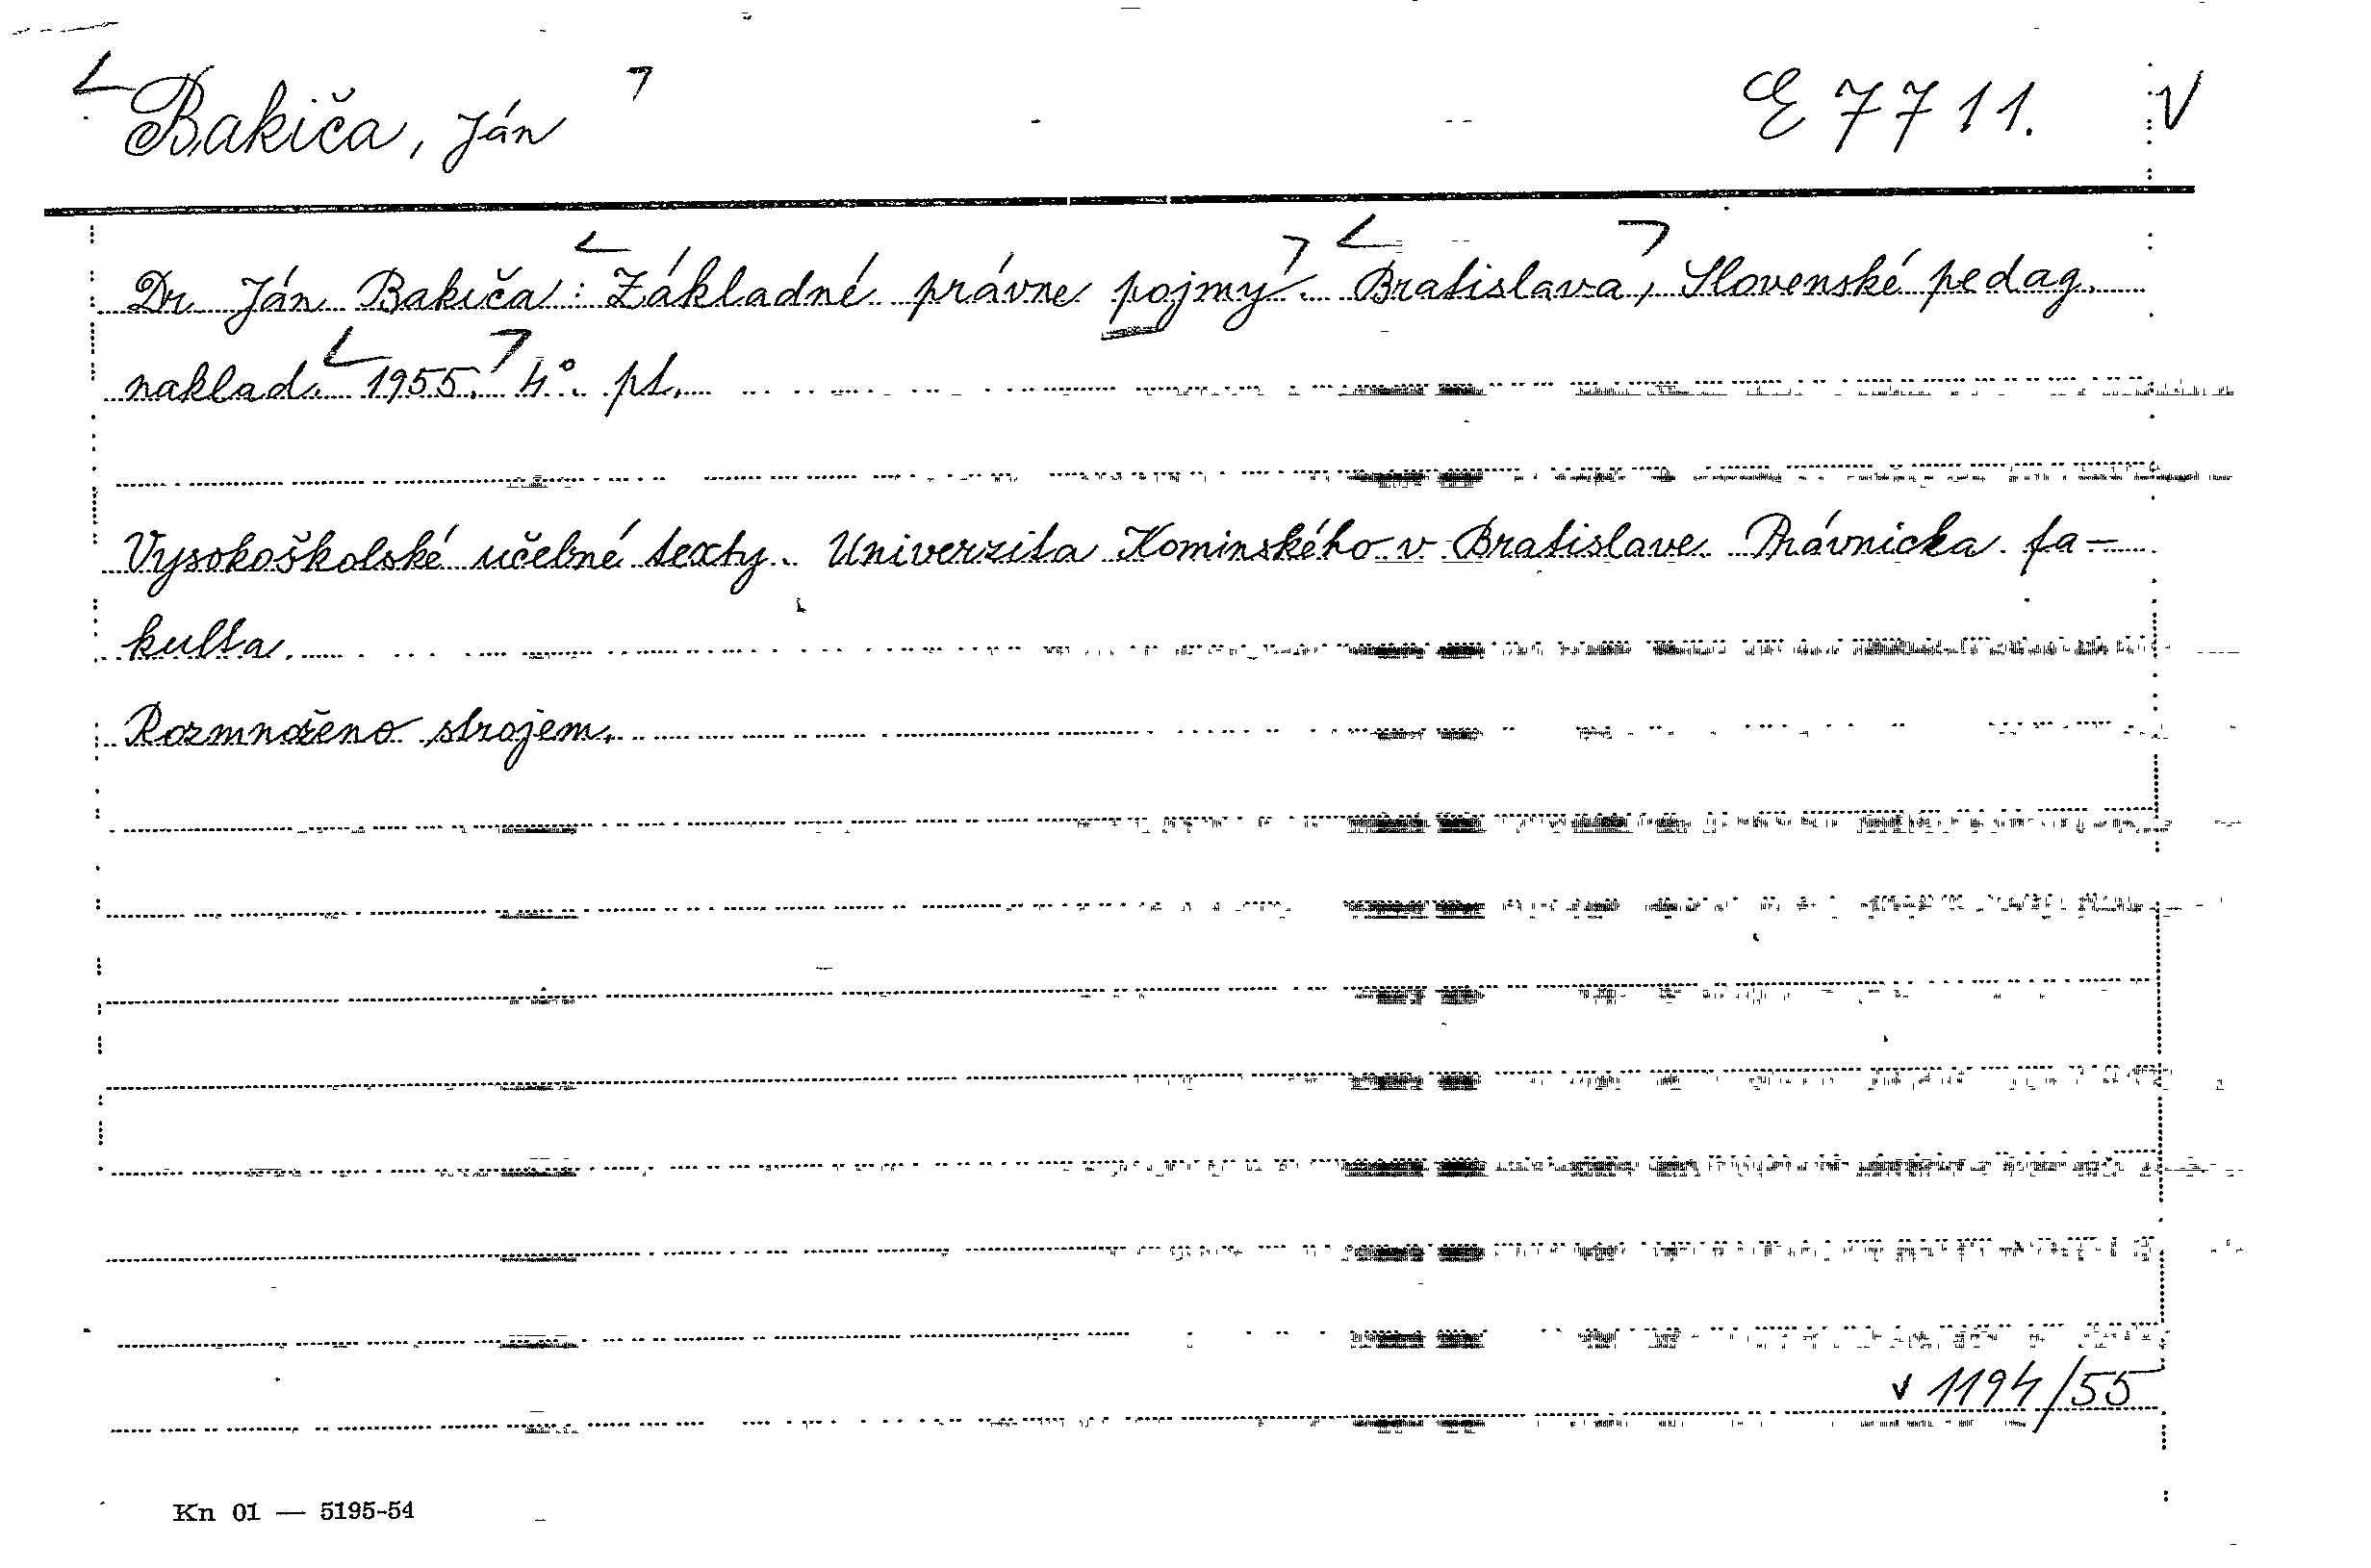 Bakiča, Ján E 7711. V
Dr Ján Bakiča: Základné právne pojmý. Bratislava, Slovenské pedag.
naklad. 1955. 4°. pt.
Vysokoškolské učebné texty. Univerzita Kominského v Bratislave Právnicka fa-
kulta.
Rozmnoženo strojem.
v 1194/55
Kn 01 — 5195-54